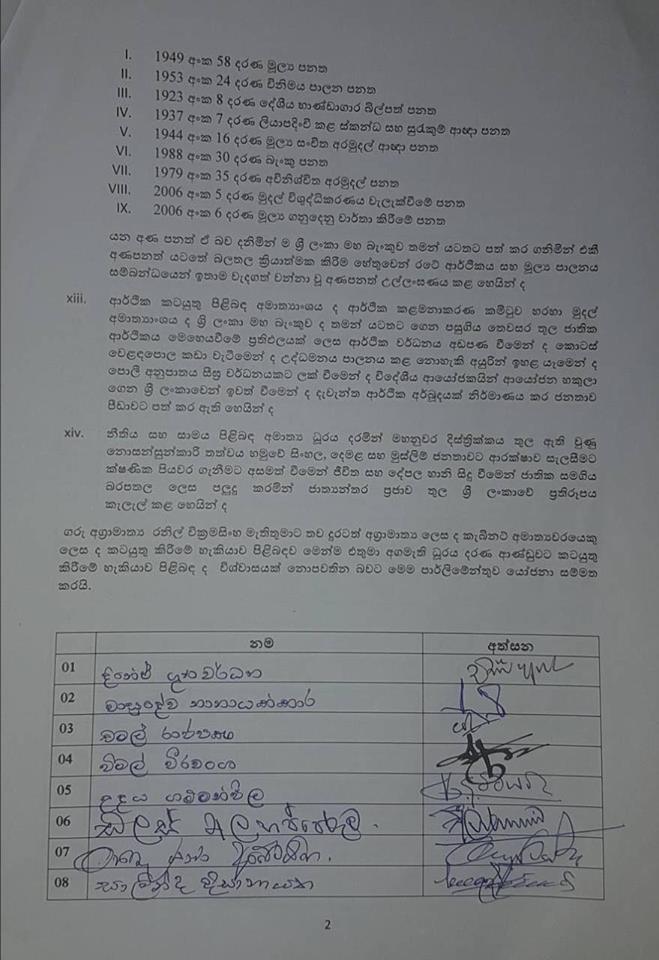 I. 1949 අංක 58 දරණ මූල්‍ය පනත
II. 1953 අංක 24 දරණ විනිමය පාලන පනත
III. 1923 අංක 8 දරණ දේශීය භාණ්ඩාගාර බිල්පත් පනත
IV. 1937 අංක 7 දරණ ලියාපදිංචි කළ ස්කන්ධ සහ සුරැකුම් ආඥා පනත
V. 1944 අංක 16 දරණ මූල්‍ය සංචිත අරමුදල් ආඥා පනත
VI. 1988 අංක 30 දරණ බැංකු පනත
VII. 1979 අංක 35 දරණ අවිනිශ්චිත අරමුදල් පනත
VIII. 2006 අංක 5 දරණ මුදල් විශුද්ධිකරණය වැලැක්වීමේ පනත
IX. 2006 අංක 6 දරණ මූල්‍ය ගනුදෙනු වාර්තා කිරීමේ පනත
යන අණ පනත් ඒ බව දනිමින් ම ශ්‍රී ලංකා මහ බැංකුව තමන් යටතට පත් කර ගනිමින් එකී
අණපනත් යටතේ බලතල ක්‍රියාත්මක කිරීම හේතුවෙන් රටේ ආර්ථිකය සහ මූල්‍ය පාලනය
සම්බන්ධයෙන් ඉතාම වැදගත් වන්නා වූ අණපනත් උල්ලංඝණය කළ හෙයින් ද
xiii. ආර්ථික කටයුතු පිළිබඳ අමාත්‍යාංශය ද ආර්ථික කළමනාකරණ කමිටුව හරහා මුදල්
අමාත්‍යාංශය ද ශ්‍රී ලංකා මහ බැංකුව ද තමන් යටතට ගෙන පසුගිය තෙවසර තුල ජාතික
ආර්ථිකය මෙහෙයවීමේ ප්‍රතිඵලයක් ලෙස ආර්ථික වර්ධනය අඩපණ වීමෙන් ද කොටස්
වෙළඳපොල කඩා වැටීමෙන් ද උද්ධමනය පාලනය කළ නොහැකි අයුරින් ඉහළ යෑමෙන් ද
පොලී අනුපාතය සීඝ්‍ර වර්ධනයකට ලක් වීමෙන් ද විදේශීය ආයෝජකයින් ආයෝජන හකුලා
ගෙන ශ්‍රී ලංකාවෙන් ඉවත් වීමෙන් ද දැවැන්ත ආර්ථික අර්බුදයක් නිර්මාණය කර ජනතාව
පීඩාවට පත් කර ඇති හෙයින් ද
xiv. නීතිය සහ සාමය පිළිබඳ අමාත්‍ය ධූරය දරමින් මහනුවර දිස්ත්‍රික්කය තුල ඇති වුණු
නොසන්සුන්කාරී තත්වය හමුවේ සිංහල, දෙමළ සහ මුස්ලිම් ජනතාවට ආරක්ෂාව සැලසීමට
ක්ෂණික පියවර ගැනීමට අසමත් වීමෙන් ජීවිත සහ දේපල හානි සිදු වීමෙන් ජාතික සමගිය
බරපතල ලෙස පලුදු කරමින් ජාත්‍යන්තර ප්‍රජාව තුල ශ්‍රී ලංකාවේ ප්‍රතිරූපය
කැලැල් කළ හෙයින් ද
ගරු අග්‍රාමාත්‍ය රනිල් වික්‍රමසිංහ මැතිතුමාට තව දුරටත් අග්‍රාමාත්‍ය ලෙස ද කැබිනට් අමාත්‍යවරයෙකු
ලෙස ද කටයුතු කිරීමේ හැකියාව පිළිබඳව මෙන්ම එතුමා අගමැති ධූරය දරණ ආණ්ඩුවට කටයුතු
කිරීමේ හැකියාව පිළිබඳ ද විශ්වාසයක් නොපවතින බවට මෙම පාර්ලිමේන්තුව යෝජනා සම්මත
කරයි.
නම අත්සන
01 දිනේෂ් ගුණවර්ධන
02 වාසුදේව නානායක්කාර
03 චමල් රාජපක්ෂ
04 විමල් වීරවංශ
05 උදය ගම්මන්පිල
06 ඩලස් අලහප්පෙරුම.
07
08
2